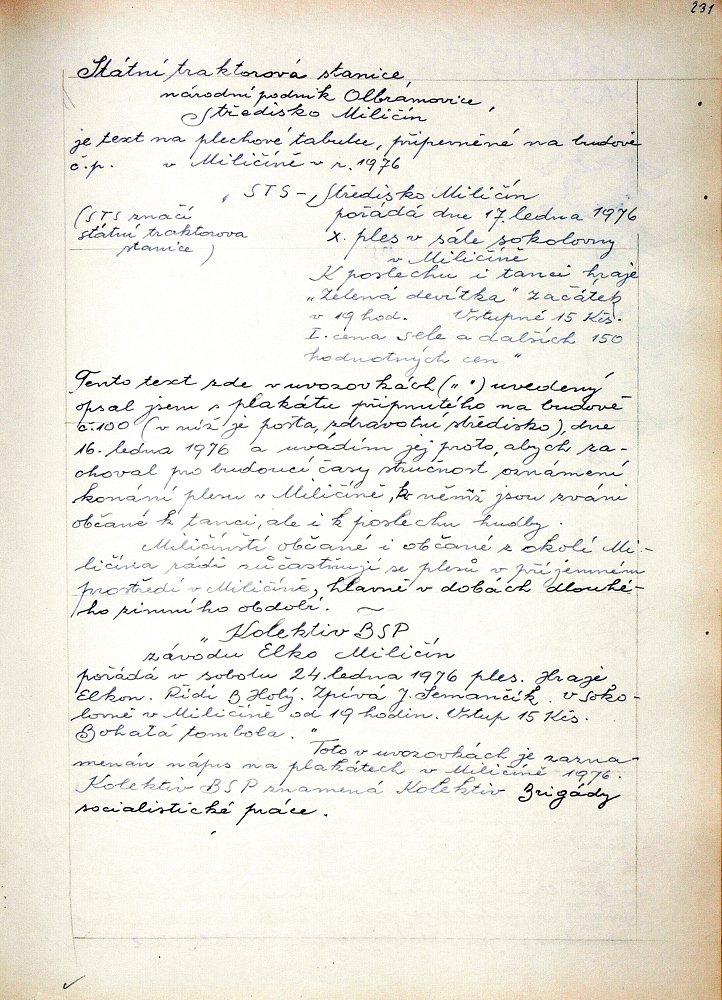 231
Státní traktorová stanice,
národní podnik Olbramovice,
Středisko Miličín
je text na plechové tabulce, připevněné na budově
č.p. v Miličíně v r. 1976
„ STS - Středisko Miličín
(STS značí
státní traktorova
stanice)
pořádá dne 17. ledna 1976
X. ples v sále sokolovny
v Miličíně
K poslechu i tanci hraje
„Zelená devítka" Začátek
v 19 hod. Vstupné 15 Kčs.
I. cena sele a dalších 150
hodnotných cen "
Tento text zde v uvozovkách („ ") uvedený
opsal jsem s plakátu připnutého na budově
č. 100 (v níž je pošta, zdravotní středisko), dne
16. ledna 1976 a uvádím jej proto, abych za-
choval pro budoucí časy stručnost oznámení
konání plesu v Miličíně, k němuž jsou zváni
občané k tanci, ale i k poslechu hudby.
Miličínští občané i občané z okolí Mi-
ličína rádi súčastňují se plesů v příjemném
prostředí v Miličíně, hlavně v dobách dlouhé-
ho zimního období. ~
„ Kolektiv BSP
závodu Elko Miličín
pořádá v sobotu 24. ledna 1976 ples. Hraje
Elkon. Řídí B. Holý. Zpívá J. Semančík. v Soko-
lovně v Miličíně od 19 hodin. Vstup 15 Kčs.
Bohatá tombola. "
Toto v uvozovkách je zazna-
menán nápis na plakátech v Miličíně 1976.
Kolektiv BSP znamená Kolektiv Brigády
socialistické práce.